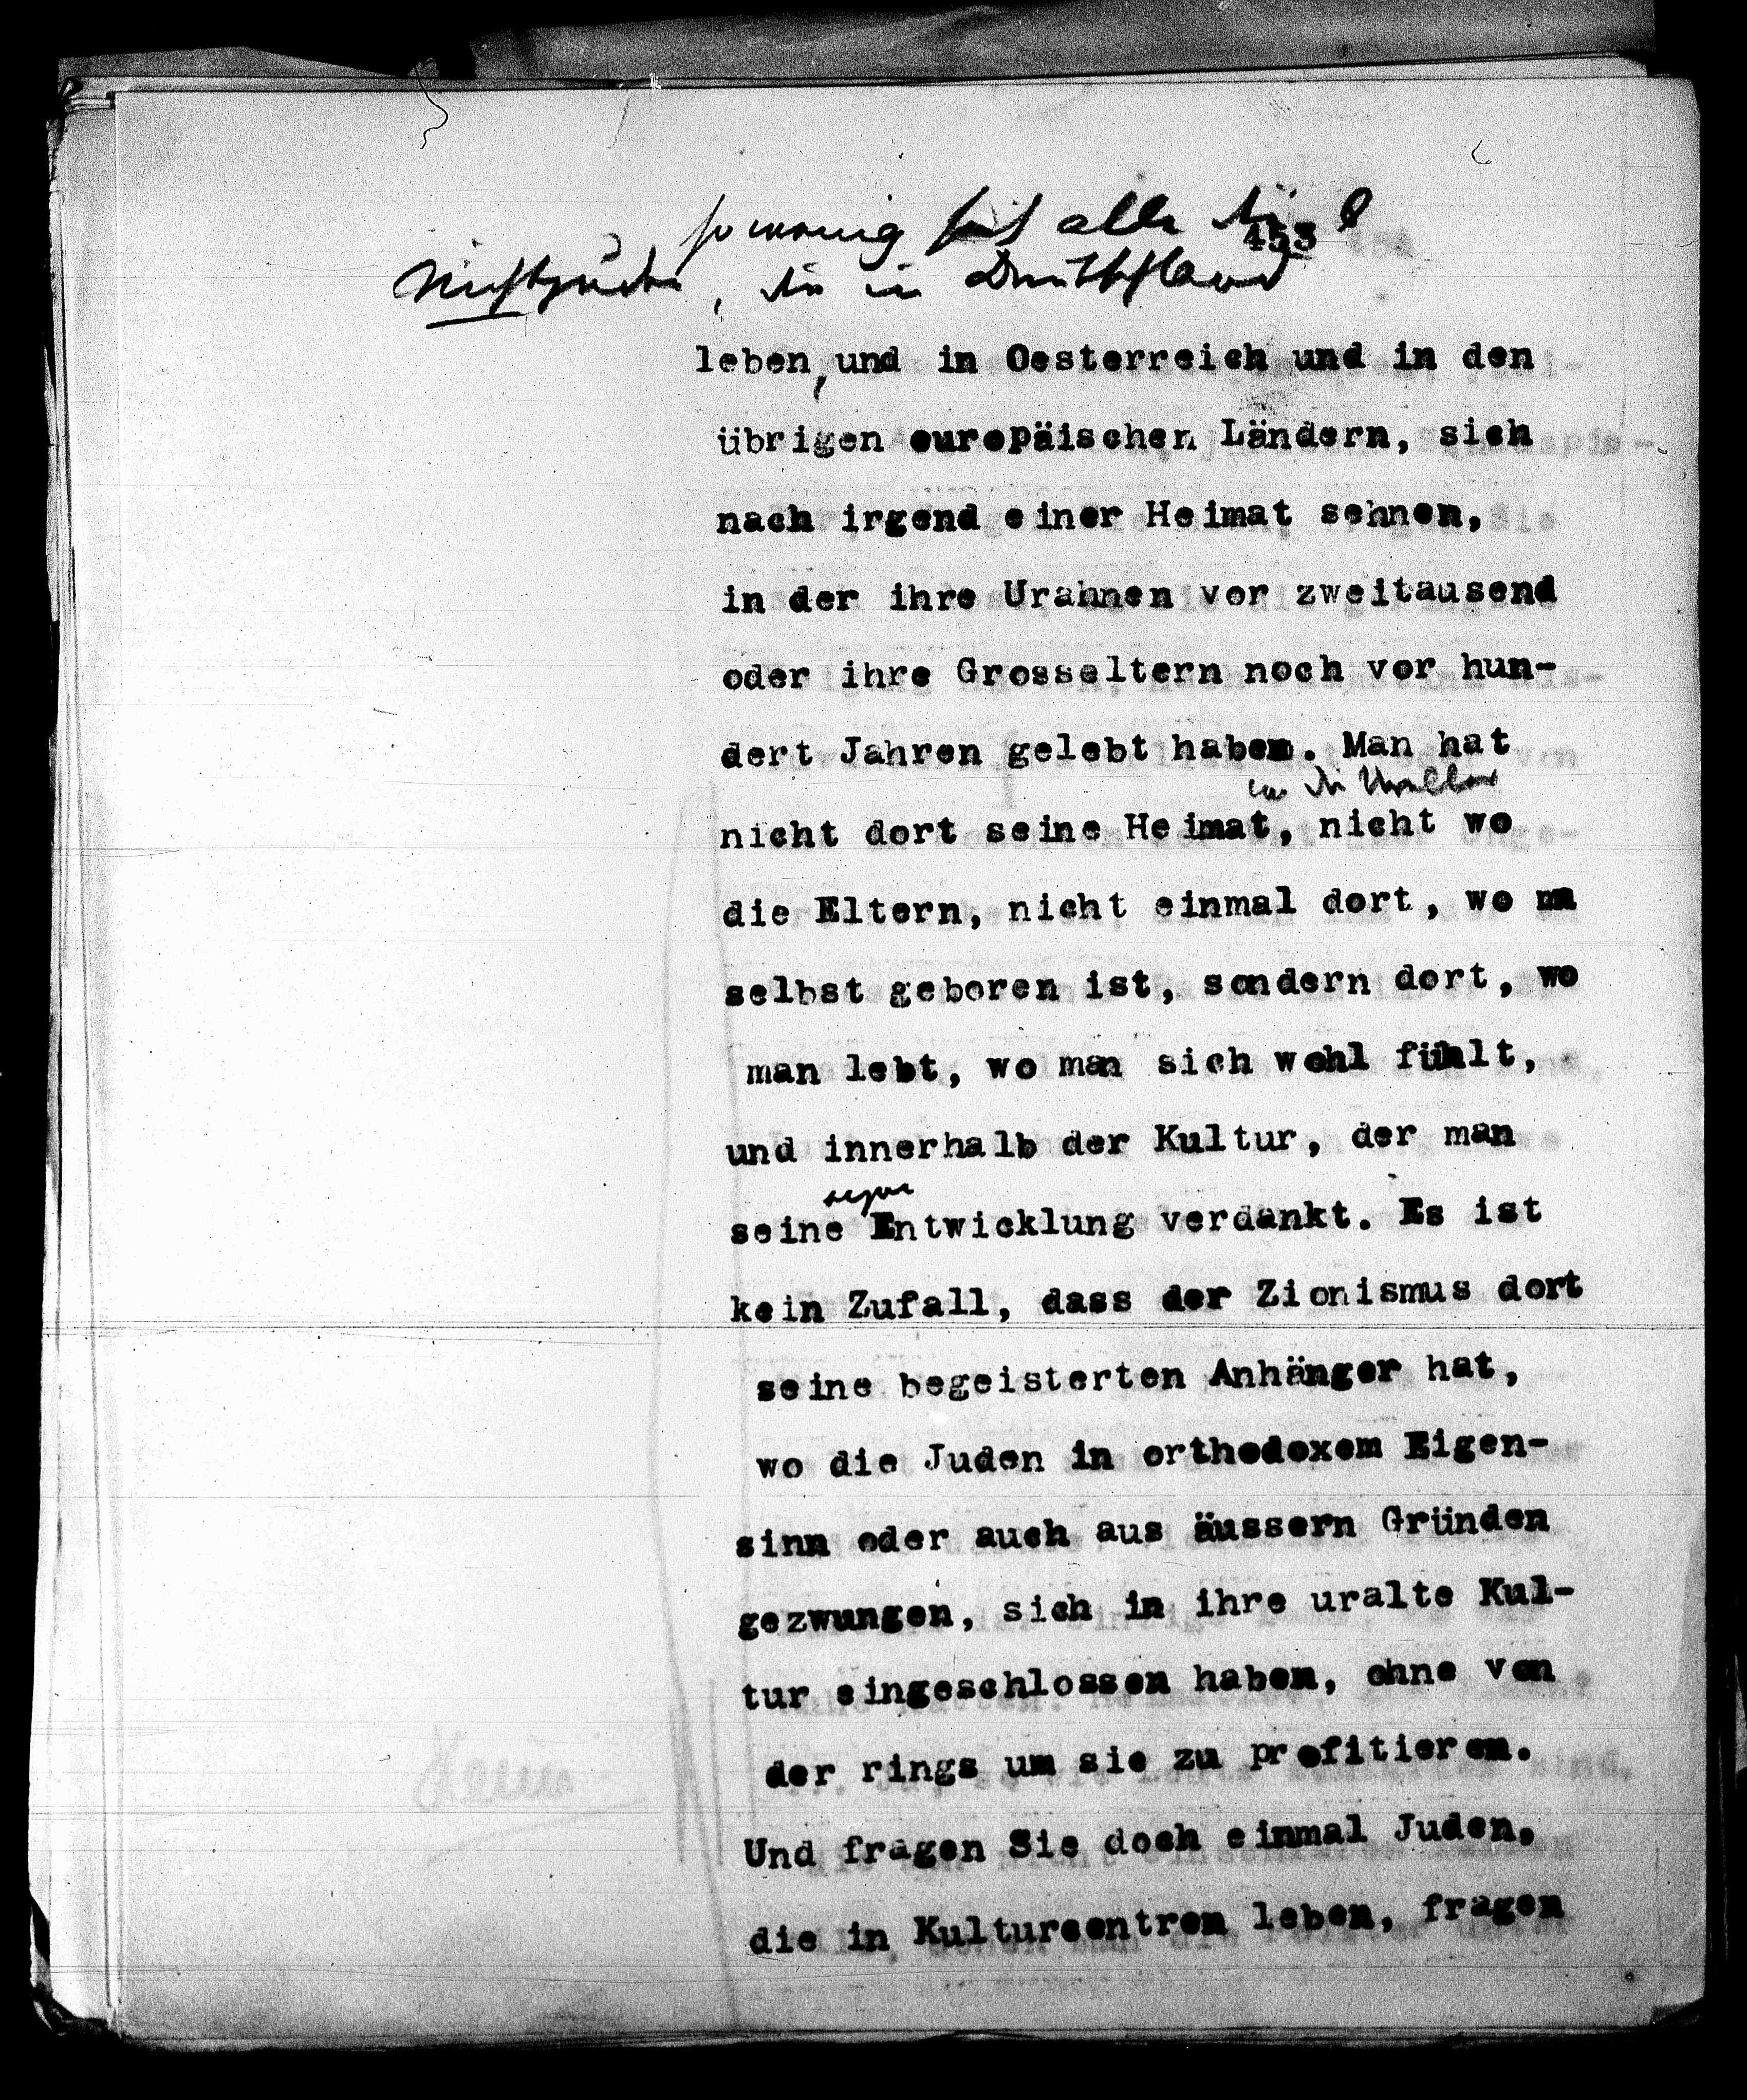 so wenig sich alle die
453
Mischjuden, die in Deutschland
leben, und in Oesterreich und in den
übrigen europäischen Ländern, sich
nach irgend einer Heimat sehnen,
in der ihre Urahnen vor zweitausend
oder ihre Grosseltern noch vor hun-
dert Jahren gelebt haben. Man hat
wo die
nicht dort seine Heimat, nicht wo
die Eltern, nicht einmal dort, wo m
selbst geboren ist, sondern dort, wo
man lebt, wo man sich wohl fühlt,
und innerhalb der Kultur, der man
seine Entwicklung verdankt. Es ist
kein Zufall, dass der Zionismus dort
seine begeisterten Anhänger hat,
wo die Juden in orthodoxem Eigen-
sinn oder auch aus äussern Gründen
gezwungen, sich in ihre uralte Kul-
tur eingeschlossen haben, ohne von
der rings um sie zu profitieren.
Und fragen Sie doch einmal Juden,
die in Kulturcentren leben, fragen